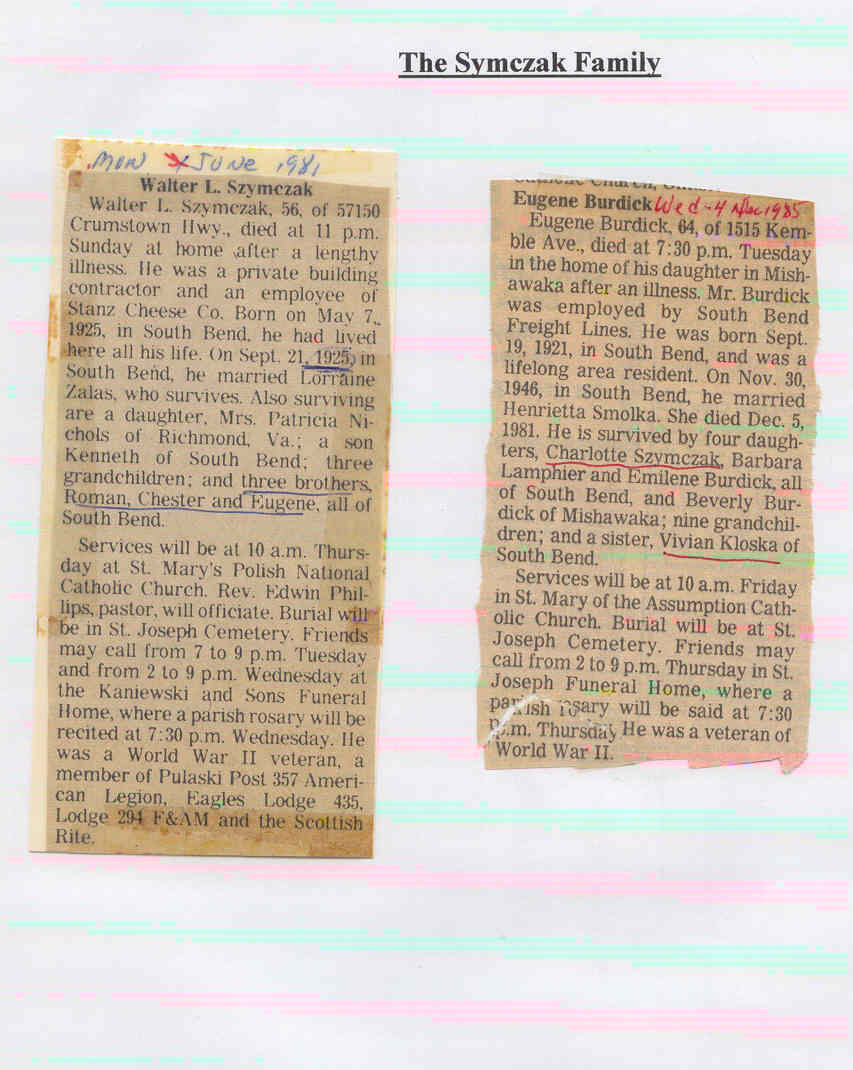 The Symczak Family
Mon June 1981
Walter L. Szymczak
Walter L. Szymczak, 56, of 57150
Crumstown Hwy., died at 11 p.m.
Sunday at home after a lengthy
illness. He was a private building
contractor and an employee of
Stanz Cheese Co. Born on May 7,
1925, in South Bend, he had lived
here all his life. On Sept. 21, 1925, in
South Bend, he married Lorraine
Zalas, who survives. Also surviving
are a daughter, Mrs. Patricia Ni-
chols of Richmond, Va.; a son
Kenneth of South Bend; three
grandchildren; and three brothers,
Roman, Chester and Eugene, all of
South Bend.
Services will be at 10 a.m. Thurs-
day at St. Mary's Polish National
Catholic Church. Rev. Edwin Phil-
lips, pastor, will officiate. Burial will
be in St. Joseph Cemetery. Friends
may call from 7 to 9 p.m. Tuesday
and from 2 to 9 p.m. Wednesday at
the Kaniewski and Sons Funeral
Home, where a parish rosary will be
recited at 7:30 p.m. Wednesday. He
was a World War II veteran, a
member of Pulaski Post 357 Ameri-
can Legion, Eagles Lodge 435,
Lodge 294 F&AM and the Scottish
Rite.
Catholic Church,
Eugene Burdick Wed-4 Dec 1985
Eugene Burdick, 64, of 1515 Kem-
ble Ave., died at 7:30 p.m. Tuesday
in the home of his daughter in Mish-
awaka after an illness. Mr. Burdick
was employed by South Bend
Freight Lines. He was born Sept.
19, 1921, in South Bend, and was a
lifelong area resident. On Nov. 30,
1946, in South Bend, he married
Henrietta Smolka. She died Dec. 5,
1981. He is survived by four daugh-
ters, Charlotte Szymczak, Barbara
Lamphier and Emilene Burdick, all
of South Bend, and Beverly Bur-
dick of Mishawaka; nine grandchil-
dren; and a sister, Vivian Kloska of
South Bend.
Services will be at 10 a.m. Friday
in St. Mary of the Assumption Cath-
olic Church. Burial will be at St.
Joseph Cemetery. Friends may
call from 2 to 9 p.m. Thursday in St.
Joseph Funeral Home, where a
parish rosary will be said at 7:30
p.m. Thursday He was a veteran of
World War II.